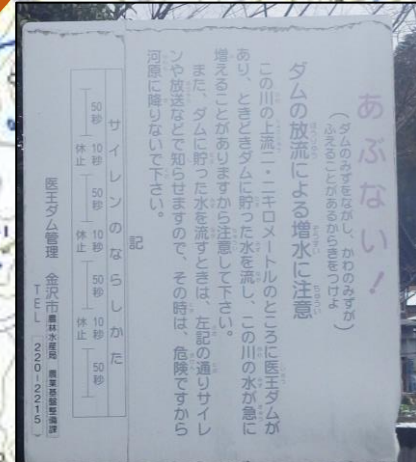 あぶない!
(ダムのみずをながし、かわのみずが
ふえることがあるからきをつけよ)
ダムの放流による増水に注意
この川の上流二・二キロメートルのところに医王ダムが
あり、ときどきダムに貯った水を流し、この川の水が急に
増えることがありますから注意して下さい。
また、ダムに貯った水を流すときは、左記の通りサイレ
ンや放送などで知らせますので、その時は、危険ですから
河原に降りないで下さい。
記
サイレンのならしかた
50秒 10秒休止 50秒 10秒休止 50秒 10秒休止 50秒
医王ダム管理 金沢市農林水産局 農業基盤整備課
TEL 220-2215